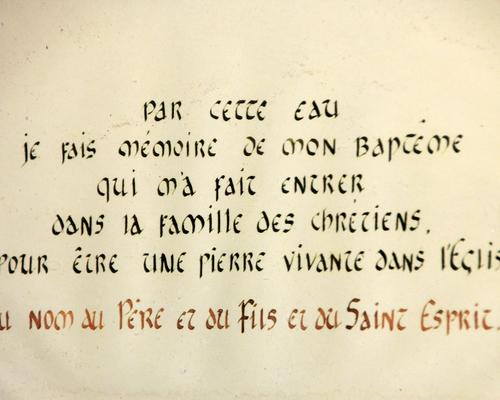 par cette eau
je fais mémoire de mon Baptême
qui m'a fait entrer
dans la famille des chrétiens.
pour être une pierre vivante dans l'Églis
u nom du Père et du Fils et du Saint Esprit.